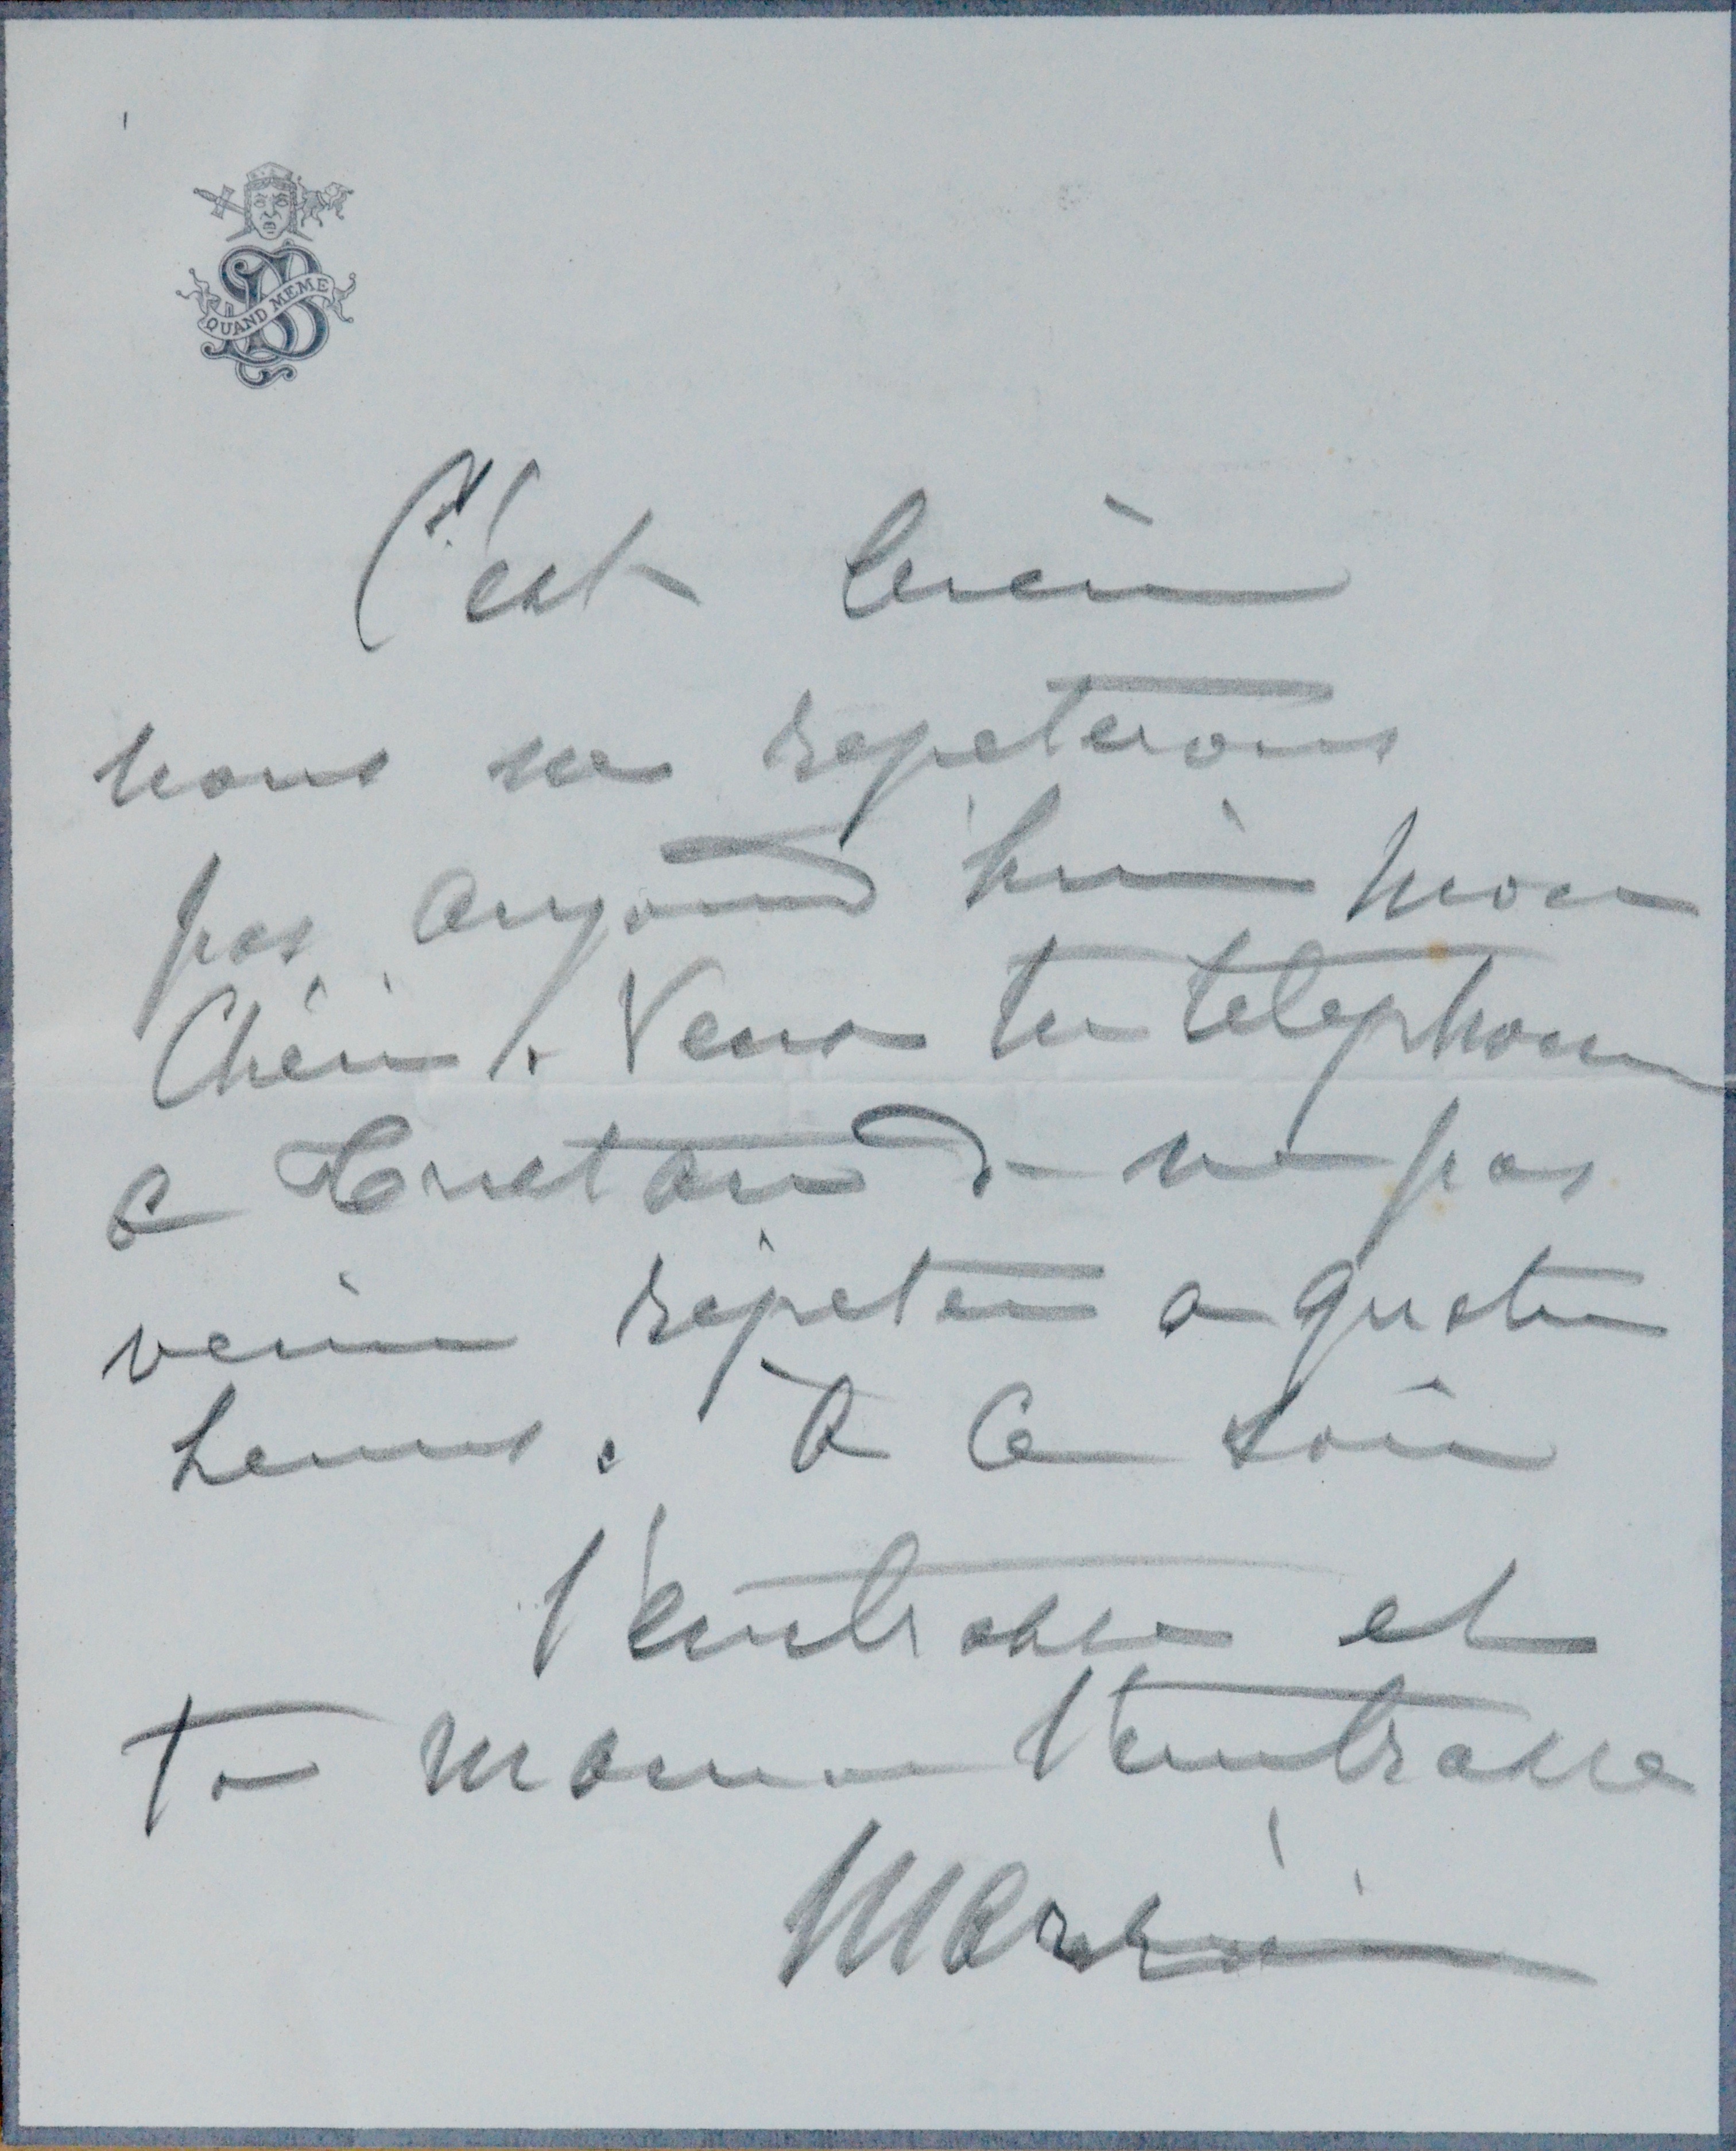 QUAND MEME
C'est bien
nous ne repeterons
pas aujourd'hui mon
Chéri. Veux tu telephoner
a Rostand de ne pas
venir répéter a quatre
heures. à Ce soir
t'embrasse et
Ta maman t'embrasse